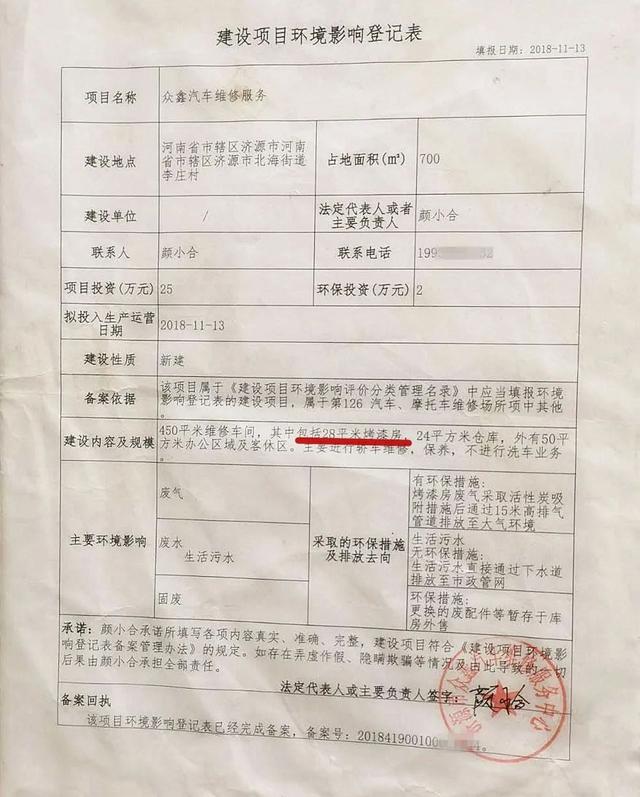 建设项目环境影响登记表
填报日期：2018-11-13
项目名称
众鑫汽车维修服务
建设地点
河南省市辖区济源市河南
省市辖区济源市北海街道
李庄村
占地面积(㎡)
700
建设单位
/
法定代表人或者
主要负责人
颜小合
联系人
颜小合
联系电话
199
32
项目投资(万元)
25
环保投资(万元)
2
拟投入生产运营
日期
2018-11-13
建设性质
新建
备案依据
该项目属于《建设项目环境影响评价分类管理名录》中应当填报环境
影响登记表的建设项目，属于第126 汽车、摩托车维修场所项中其他
。
建设内容及规模
450平米维修车间，其中包括28平米烤漆房，24平方米仓库，外有50平
方米办公区域及客休区。主要进行轿车维修，保养，不进行洗车业务
。
主要环境影响
废气
废水
生活污水
固废
采取的环保措施
及排放去向
有环保措施：
烤漆房废气采取活性炭吸
附措施后通过15米高排气
管道排放至大气环境
生活污水
无环保措施：
生活污水直接通过下水道
排放至市政管网
环保措施：
更换的废配件等暂存于库
房外售
承诺：颜小合承诺所填写各项内容真实、准确、完整，建设项目符合《建设项目环境影
响登记表备案管理办法》的规定。如存在弄虚作假、隐瞒欺骗等情况及由此导致的一切
后果由颜小合承担全部责任。
法定代表人或主要负责人签字：颜小合
备案回执
该项目环境影响登记表已经完成备案，备案号：201841900100
4。
服务中心